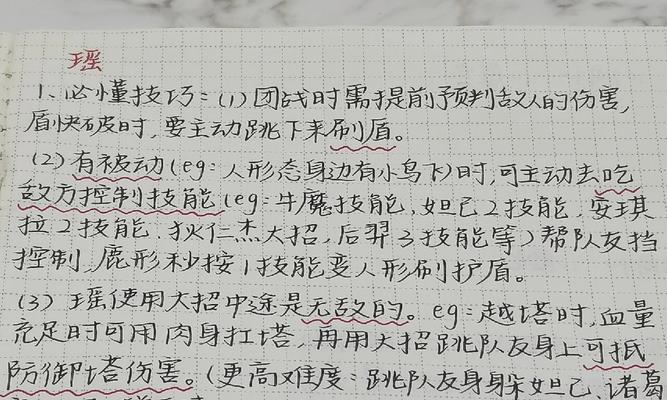 瑶
1、必懂技巧：(1)团战时需提前预判敌人的伤害，
盾快破时，要主动跳下来刷盾。
(2)有被动(eg：人形态身边有小鸟飞)时，可主动去吃
敌方控制技能(eg：牛魔技能、妲己2技能，安琪
拉2技能、狄仁杰大招，后羿3技能等)帮队友挡
控制，鹿形秒按1技能变人形刷护盾。
(3)瑶使用大招中途是无敌的。eg：越塔时，血量
充足时可用肉身扛塔，再用大招跳队友身上可抵
防御塔伤害。(更高难度：跳队友身躲妲己、诸葛